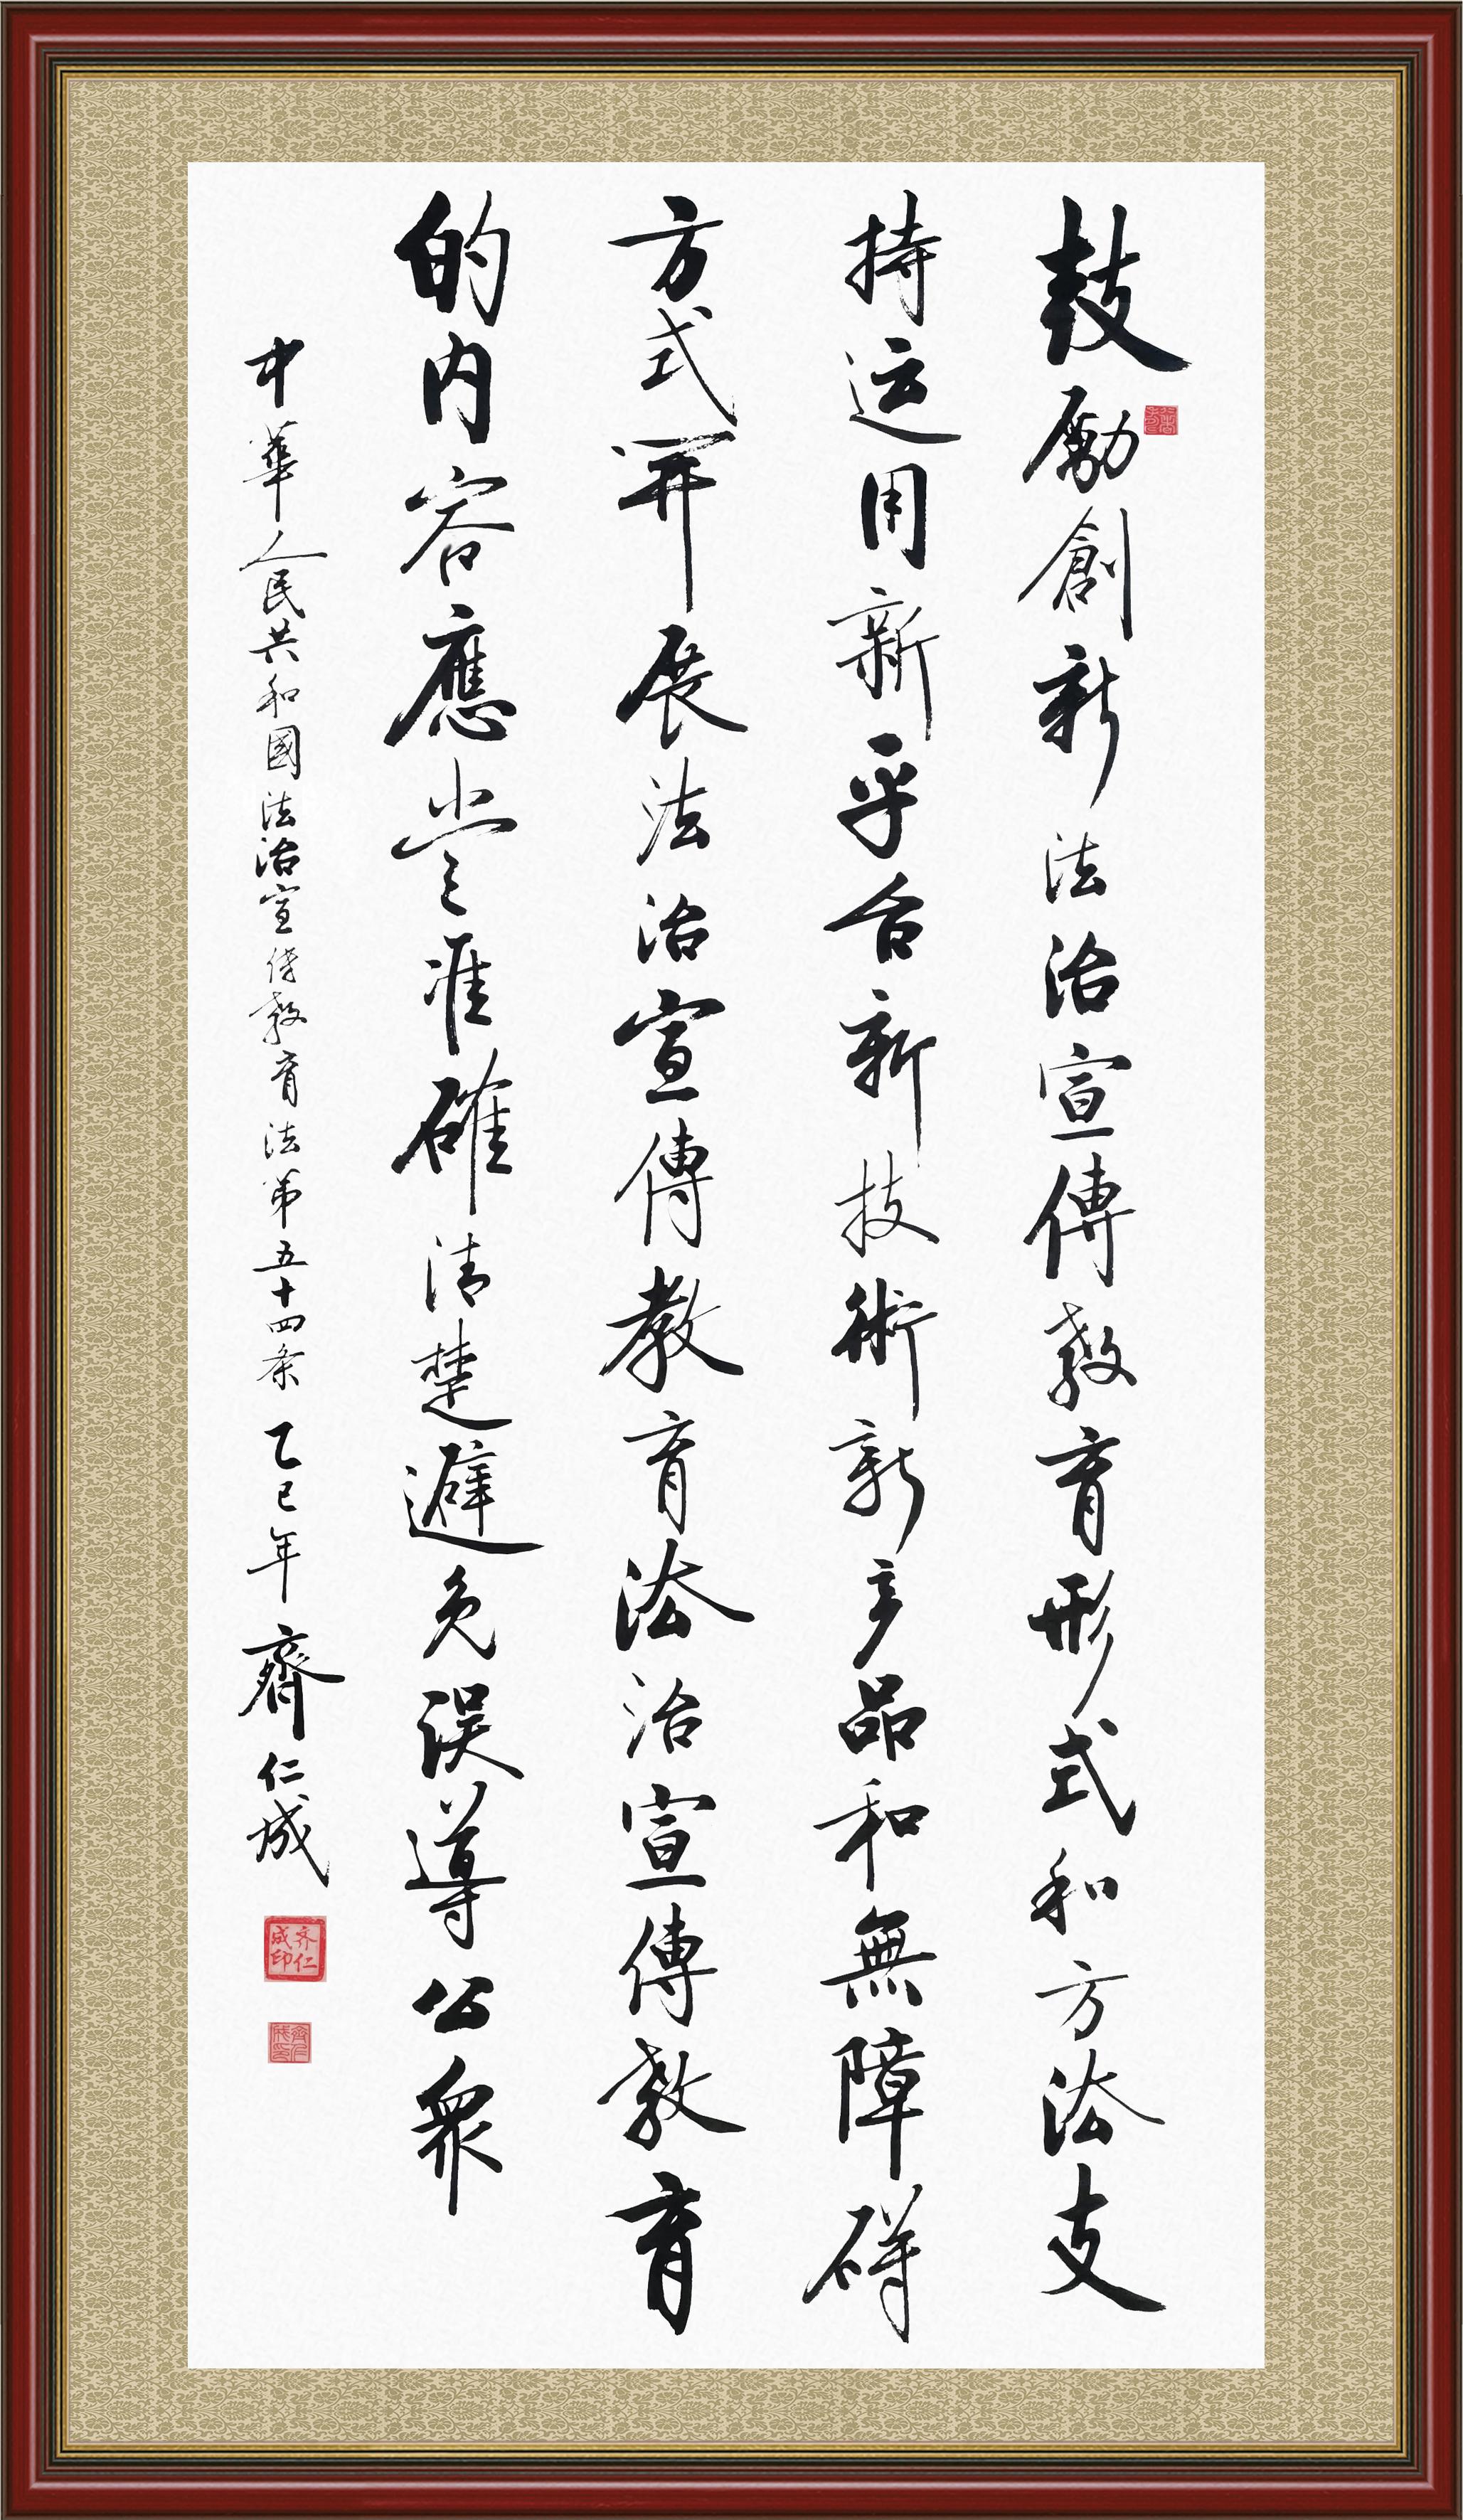 鼓勵創新法治宣傳教育形式和方法支
持運用新平台新技術新產品和無障碍
方式開展法治宣傳教育法治宣傳教育
的内容應當准確清楚避免误導公衆
中華人民共和國法治宣傳教育法第五十四条 乙巳年 齊仁成
齐仁成印